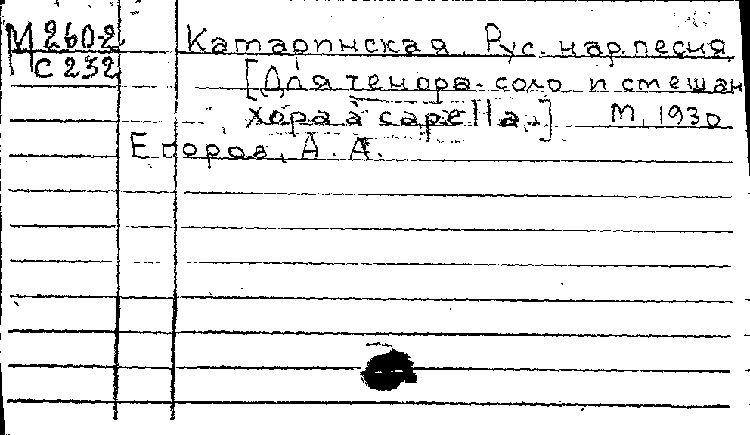 М 260-2 Катаринская. Рус. нар. песня.
С 232 [Для тенора-соло и смешан
хора a capella.] М, 1930
Егоров, А. А.